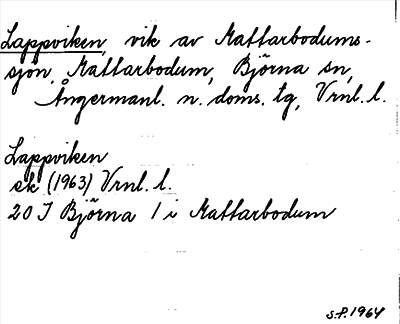 Lappviken, vik av Mattarbodums-
sjön, Mattarbodum, Björna sn,
Ångermanl. n. doms. tg, Vrnl. l.
Lappviken
ek (1963) Vrnl. l.
20 I Björna 1 i Mattarbodum
S.P. 1964